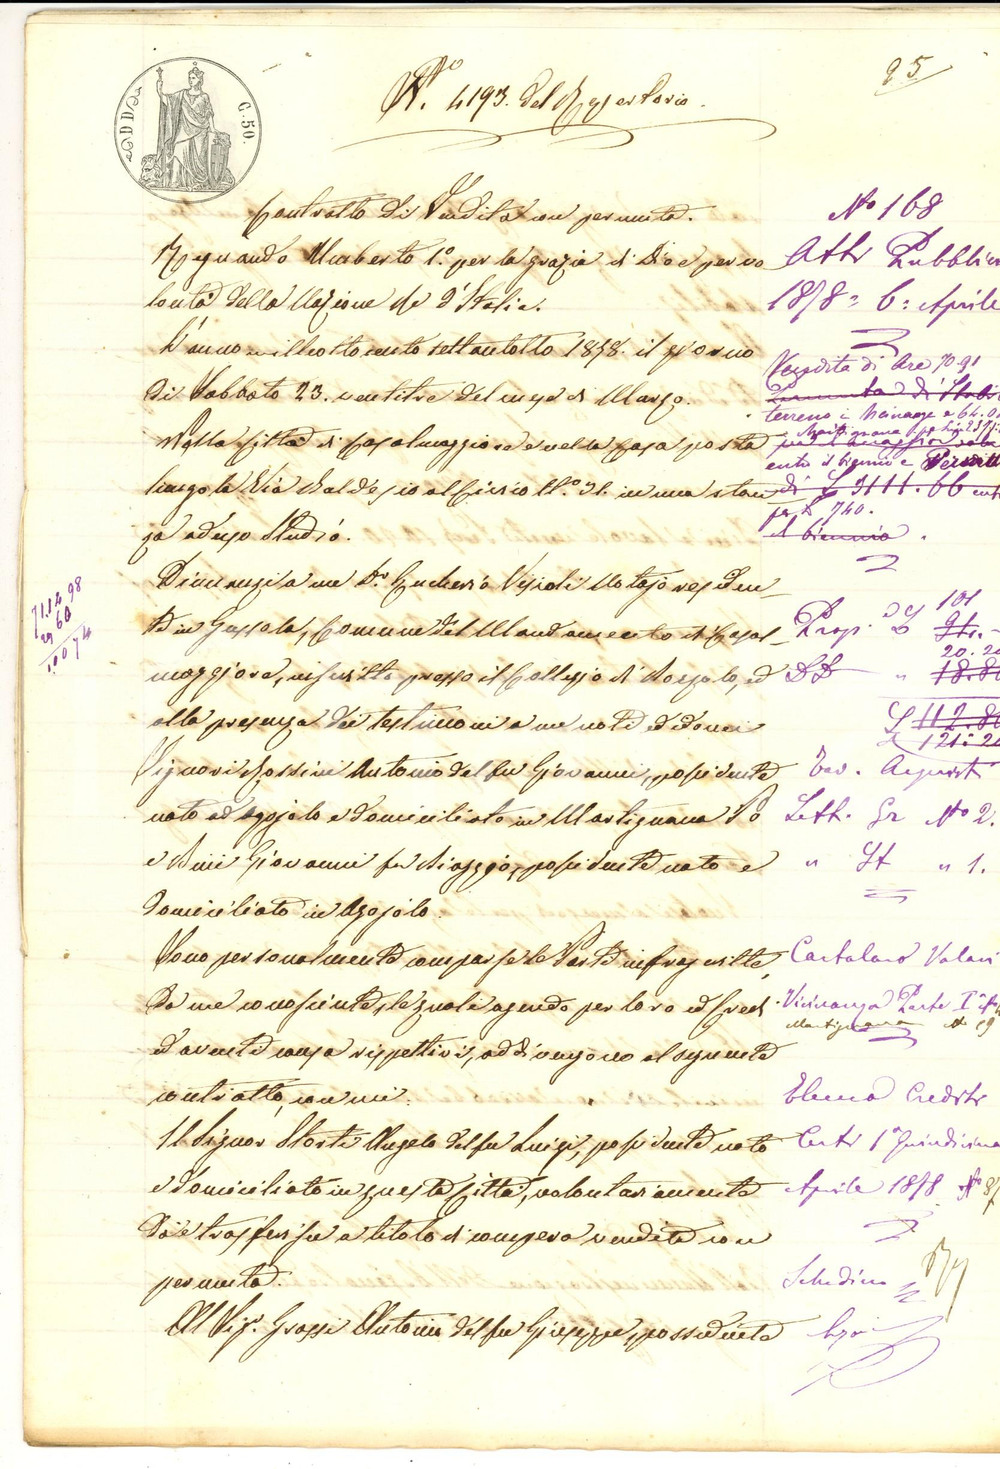 25
N.° 4193. del Repertorio.
C. 50.
Contratto di Vendita con permuta.
Regnando Umberto 1.° per la grazia di Dio e per vo
lontà della Nazione Re d'Italia.
L'anno milleottocento settantotto 1878. il giorno
di Sabbato 23. ventitre del mese di Marzo.
Nella Città di Casalmaggiore e nella Casa posta
lungo la Via Baldesio al Civico N.° 31. in una stan
za ad uso Studio.
Dinnanzi a me D.r Notajo residen
te in Gussola, Comune del Mandamento di Casal
maggiore, inscritto presso il Collegio di Bozzolo, ed
alla presenza dei testimoni a me noti ed idonei
Signori Rossini Antonio del fu Giovanni, possidente
nato ad Azojolo e domiciliato in Martignana Po
e Giovanni fu Biaggio, possidente nato e
domiciliato in Azojolo.
Sono personalmente comparse le Parti infrascritte,
da me conosciute, le quali agendo per loro ed Eredi
ed aventi causa rispettivi, addivengono al seguente
contratto, con cui.
Il Signor Storti Angelo del fu Luigi, possidente nato
e domiciliato in questa Città, volontariamente
dà e trasferisce a titolo di compera vendita con
permuta.
Al Sig.r Grossi Antonio del fu Giuseppe, possidente
N° 168
Atti Pubblici
1878 = 6 = Aprile
Vendita di Are 70.91
terreno in
Martignana
il biennio
di £ 3111.66
per £ 740.
il biennio.
Prop. £ 101
20.20
DD " 18.80
£ 112.80
£ 121.20
Tav. Acquisti
Lett. Gr N° 2.
" St " 1.
Catalano Valori
Vicinanza Parte I
Martignana N 69
Elenco Crediti
Certi 1ª Quindicina
Aprile 1878 N° 87